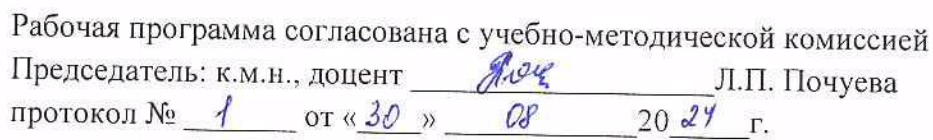 Рабочая программа согласована с учебно-методической комиссией
Председатель: к.м.н., доцент Л.П. Почуева
протокол № 1 от «30» 08 2024 г.